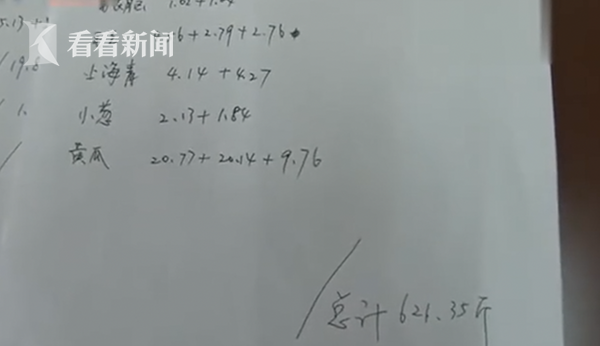 5.13
看看新闻
6+2.79+2.76
/19.6 上海青 4.14+4.27
/1. 小葱 2.13+1.84
黄瓜 20.77+20.14+9.76
总计 621.35斤